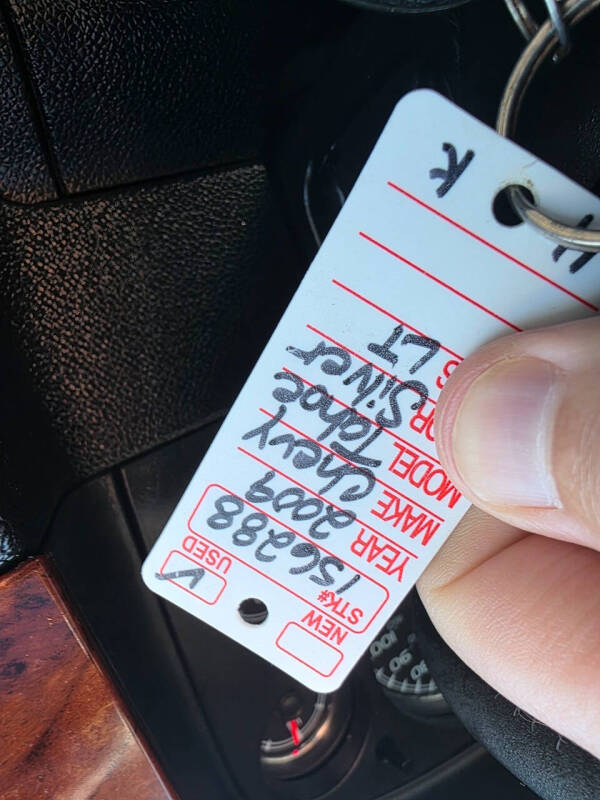 NEW USED ✓
STK# 156288
YEAR 2009
MAKE Chevy
MODEL Tahoe
OR Silver
S LT
H K
100 90